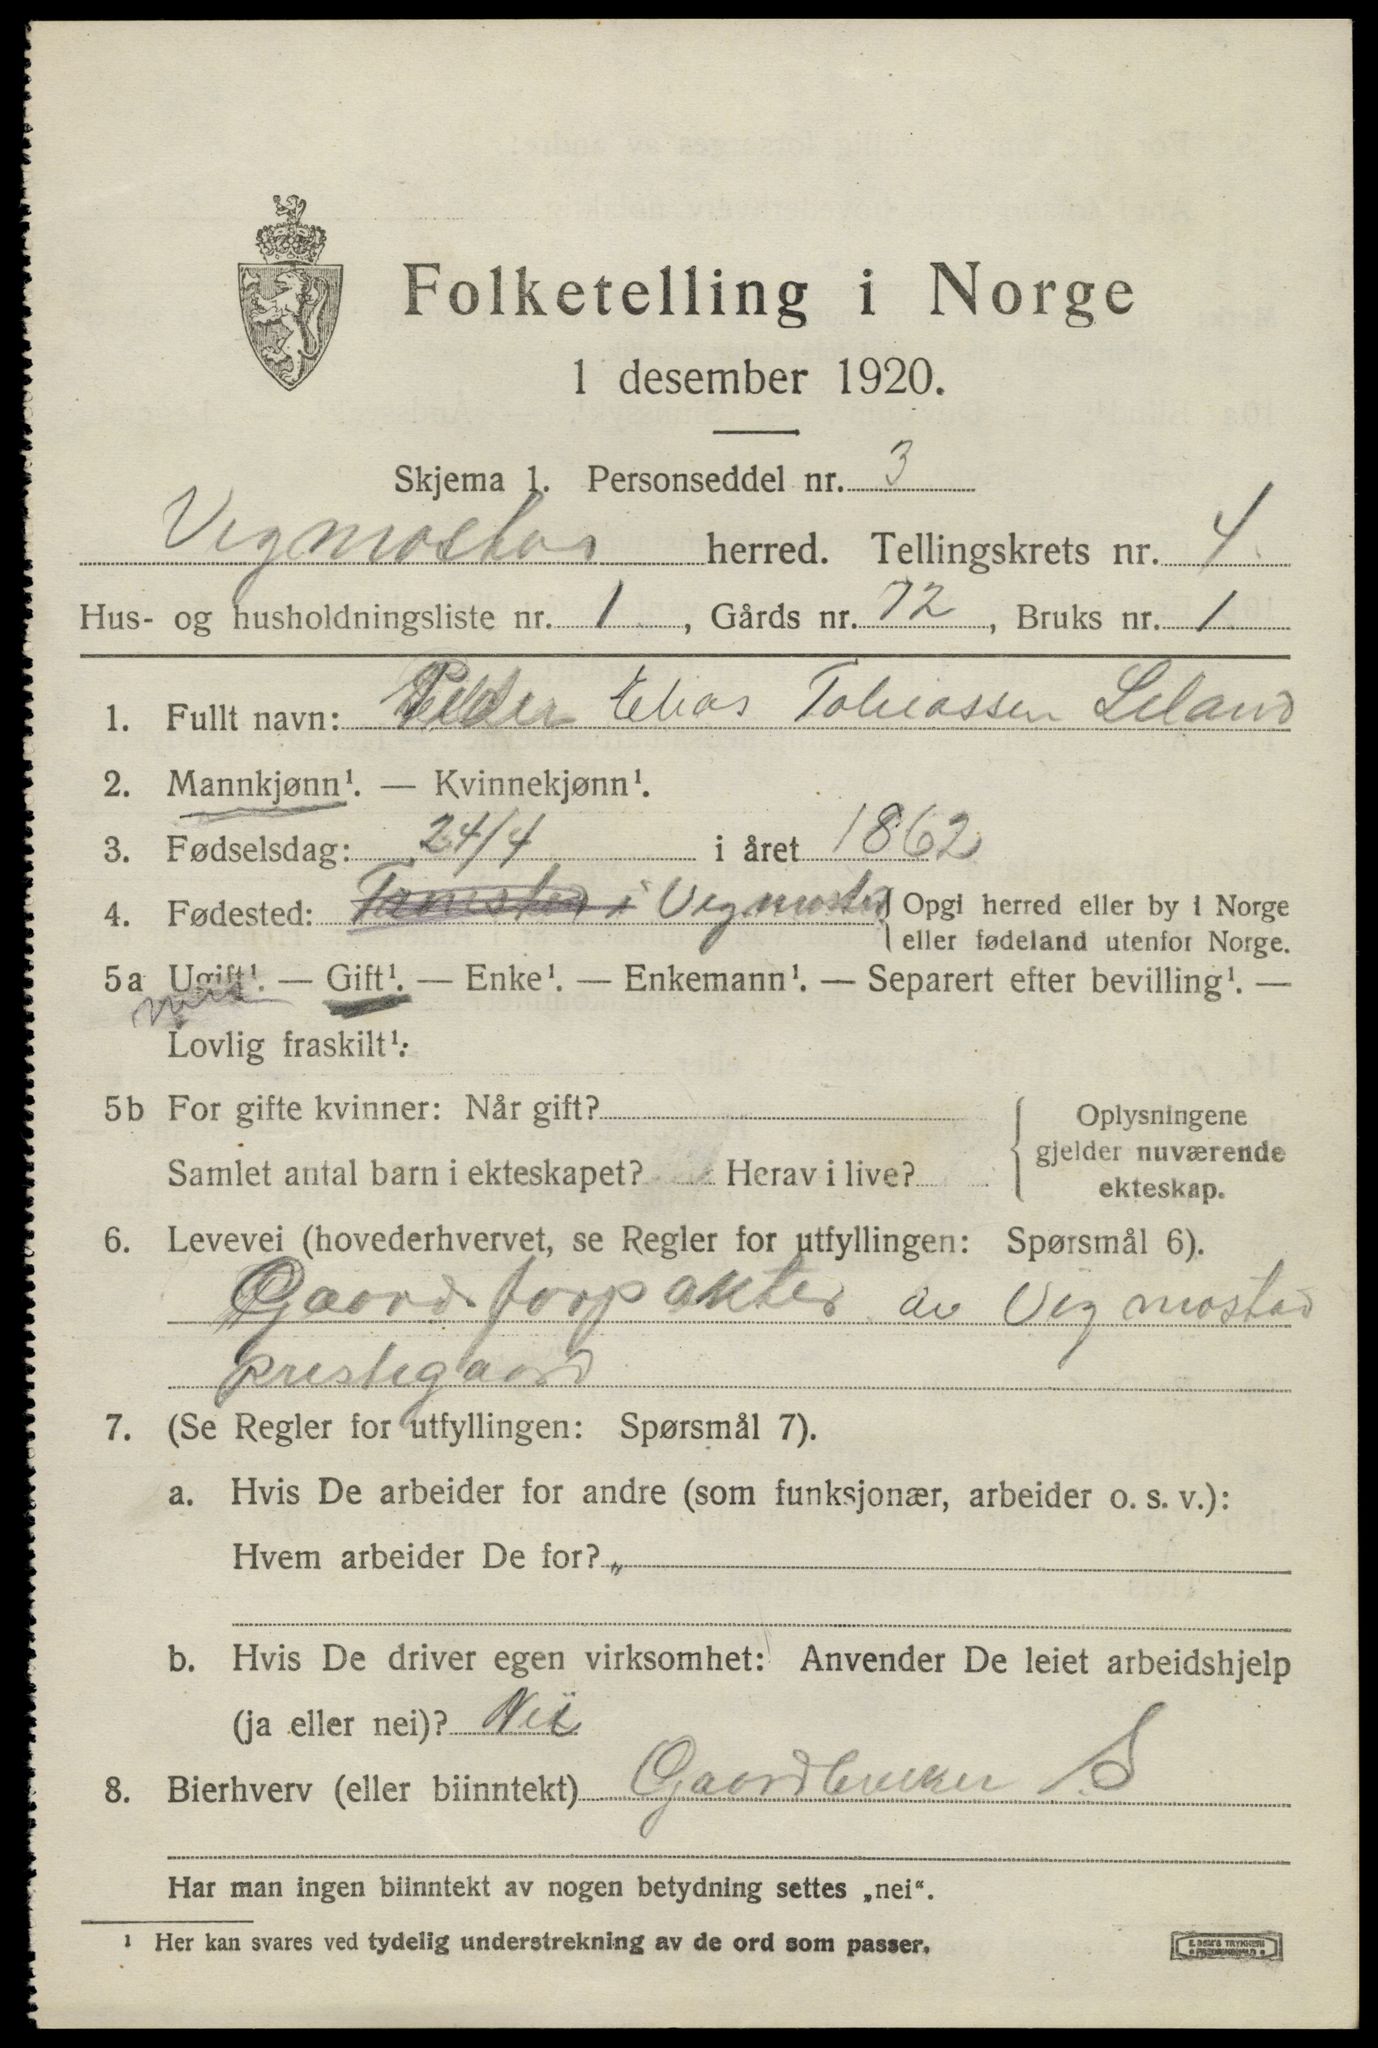 Folketelling i Norge
1 desember 1920.
Skjema 1. Personseddel nr. 3
Vegmostad herred. Tellingskrets nr. 4
Hus- og husholdningsliste nr. 1, Gårds nr. 72, Bruks nr. 1
1. Fullt navn: Elias Tobiassen Leland
2. Mannkjønn¹. — Kvinnekjønn¹.
3. Fødselsdag: 24/4 i året 1862
4. Fødested: i Vegmostad { Opgi herred eller by i Norge
eller fødeland utenfor Norge.
5a Ugift¹. — Gift¹. — Enke¹. — Enkemann¹. — Separert efter bevilling¹. —
Lovlig fraskilt¹:
5b For gifte kvinner: Når gift?
Samlet antal barn i ekteskapet? Herav i live?
{ Oplysningene
gjelder nuværende
ekteskap.
6. Levevei (hovederhvervet, se Regler for utfyllingen: Spørsmål 6).
Gaardsforpakter av Vegmostad
prestegaard
7. (Se Regler for utfyllingen: Spørsmål 7).
a. Hvis De arbeider for andre (som funksjonær, arbeider o. s. v.):
Hvem arbeider De for? „
b. Hvis De driver egen virksomhet: Anvender De leiet arbeidshjelp
(ja eller nei)? Nei
8. Bierhverv (eller biinntekt) Gaardbruker S
Har man ingen biinntekt av nogen betydning settes „nei“.
¹ Her kan svares ved tydelig understrekning av de ord som passer.